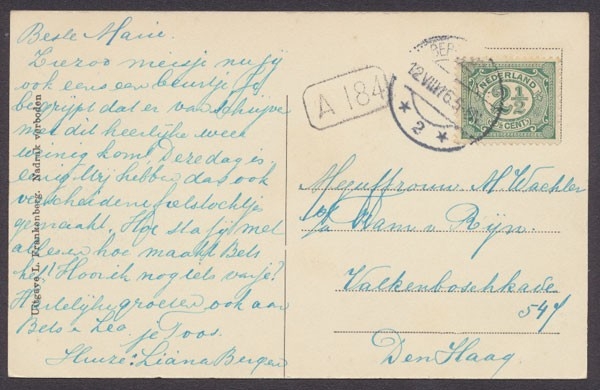 Beste Marie.
Ziezoo meisje nu jij
ook eens een beurtje. Je
begrijpt dat er van schrijven
met dit heerlijke weer
weinig komt. Deze dag is
enig. Wij hebben dan ook
verscheidene fietstochtjes
gemaakt. Hoe sta jij met
alles en hoe maakt Bets
het? Hoor ik nog iets van je?
Hartelijke groeten ook aan
Bets en Lea
je Toos.
Huize: Liana Bergen
Uitgave L. Frankenberg. Nadruk verboden
A 184
BER
12 VIII
2
NEDERLAND
2½
CENT
Mejuffrouw M Wachler
p/a Dam v. Rijn.
Valkenboschkade
547
Den Haag